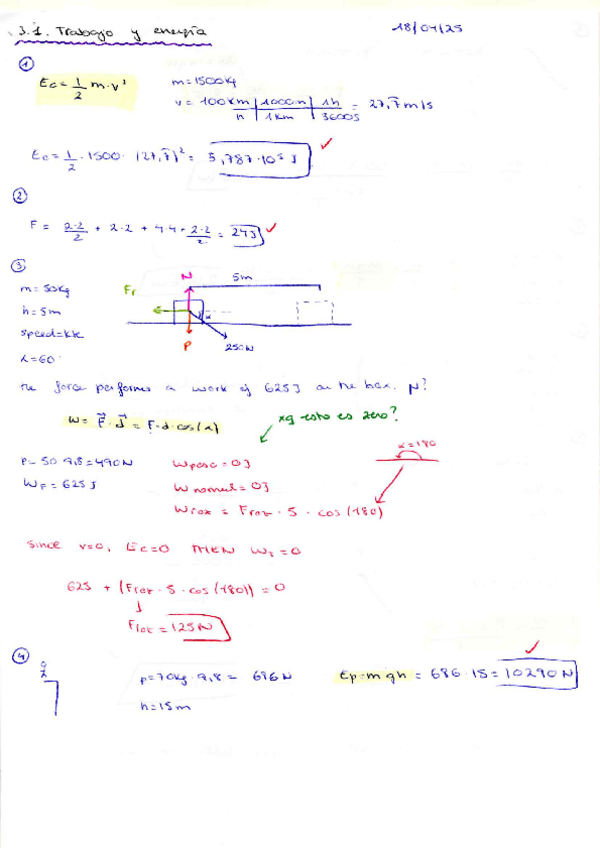 3.1. Trabajo y energía
18/04/25
1
Ec = 1/2 m·v²
m = 1500Kg
v = 100km/h | 1000m/1km | 1h/3600s = 27,7̂ m/s
Ec = 1/2 · 1500 · (27,7̂)² = 5,787·10⁵ J
2
F = 2·2/2 + 2·2 + 4·4 + 2·2/2 = 24J
3
m = 50Kg
h = 5m
speed = kk
α = 60°
Fr
N
5m
α
P
250N
the force performes a work of 625J on the box. N?
W = F⃗ · d⃗ = F·d·cos(α)
xq esto es zero?
P = 50·9,8 = 490N
WF = 625J
Wpeso = 0J
Wnormal = 0J
Wroz = Froz · 5 · cos(180)
α = 180
Since v=0, Ec=0 THEN Wt = 0
625 + (Froz · 5 · cos(180)) = 0
Froz = 125N
4
p = 70kg · 9,8 = 686N
h = 15m
Ep = m·gh = 686 · 15 = 10290N